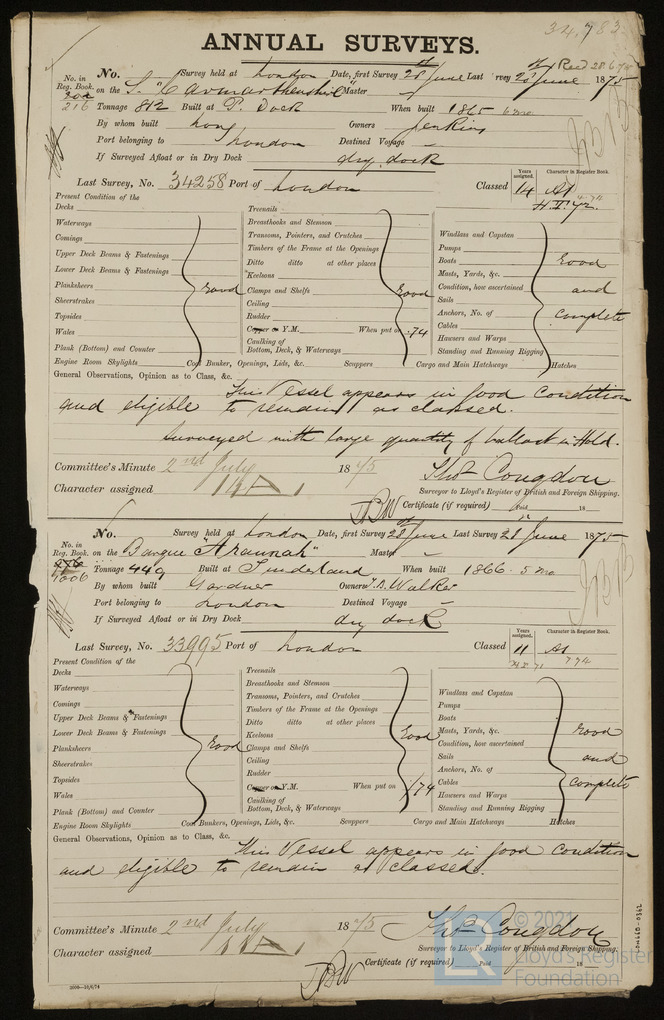 34,783
ANNUAL SURVEYS.
No. Survey held at London Date, first Survey 28th June Last Survey 28th June 1875 Recd 28.6.75
No. in Reg. Book. on the S. "Carmarthenshire" Master —
216 Tonnage 812 Built at P. Dock When built 1865 6mo
By whom built Long Owners Jenkins
Port belonging to London Destined Voyage —
If Surveyed Afloat or in Dry Dock dry dock
Last Survey, No. 34258 Port of London Classed 14 A1
Years assigned. Character in Register Book.
Present Condition of the
Decks
Waterways
Comings
Upper Deck Beams & Fastenings
Lower Deck Beams & Fastenings
Planksheers Good
Sheerstrakes
Topsides
Wales
Plank (Bottom) and Counter
Engine Room Skylights
Treenails
Breasthooks and Stemson
Transoms, Pointers, and Crutches
Timbers of the Frame at the Openings
Ditto ditto at other places
Keelsons
Clamps and Shelfs Good
Ceiling
Rudder
Copper or Y.M. When put on .74
Caulking of Bottom, Deck, & Waterways
Coal Bunker, Openings, Lids, &c. Scuppers Cargo and Main Hatchways Hatches
Windlass and Capstan
Pumps
Boats Good
Masts, Yards, &c.
Condition, how ascertained and
Sails
Anchors, No. of complete
Cables
Hawsers and Warps
Standing and Running Rigging
General Observations, Opinion as to Class, &c.
This Vessel appears in good condition
and eligible to remain as classed.
Surveyed with large quantity of ballast in Hold.
Committee's Minute 2nd July 1875
Thos Congdon
Surveyor to Lloyd's Register of British and Foreign Shipping.
Character assigned
Certificate (if required) Paid 18
No. Survey held at London Date, first Survey 28th June Last Survey 28th June 1875
No. in Reg. Book. on the Barque "Araunah" Master —
1006 Tonnage 449 Built at Sunderland When built 1866. 5mo
By whom built Gardner Owners J. B. Walker
Port belonging to London Destined Voyage —
If Surveyed Afloat or in Dry Dock dry dock
Last Survey, No. 33995 Port of London Classed 11 A1
Years assigned. Character in Register Book.
7.74
Present Condition of the
Decks
Waterways
Comings
Upper Deck Beams & Fastenings
Lower Deck Beams & Fastenings
Planksheers Good
Sheerstrakes
Topsides
Wales
Plank (Bottom) and Counter
Engine Room Skylights
Treenails
Breasthooks and Stemson
Transoms, Pointers, and Crutches
Timbers of the Frame at the Openings
Ditto ditto at other places
Keelsons Good
Clamps and Shelfs
Ceiling
Rudder
Copper or Y.M. When put on /74
Caulking of Bottom, Deck, & Waterways
Coal Bunkers, Openings, Lids, &c. Scuppers Cargo and Main Hatchways Hatches
Windlass and Capstan
Pumps
Boats
Masts, Yards, &c. Good
Condition, how ascertained
Sails and
Anchors, No. of
Cables complete
Hawsers and Warps
Standing and Running Rigging
General Observations, Opinion as to Class, &c.
This Vessel appears in good condition
and eligible to remain as classed.
Committee's Minute 2nd July 1875
Thos Congdon
Surveyor to Lloyd's Register of British and Foreign Shipping.
Character assigned
Certificate (if required) Paid 18
2000—10/6/74
LON660-0362
© 2021
LR Lloyd's Register
Foundation